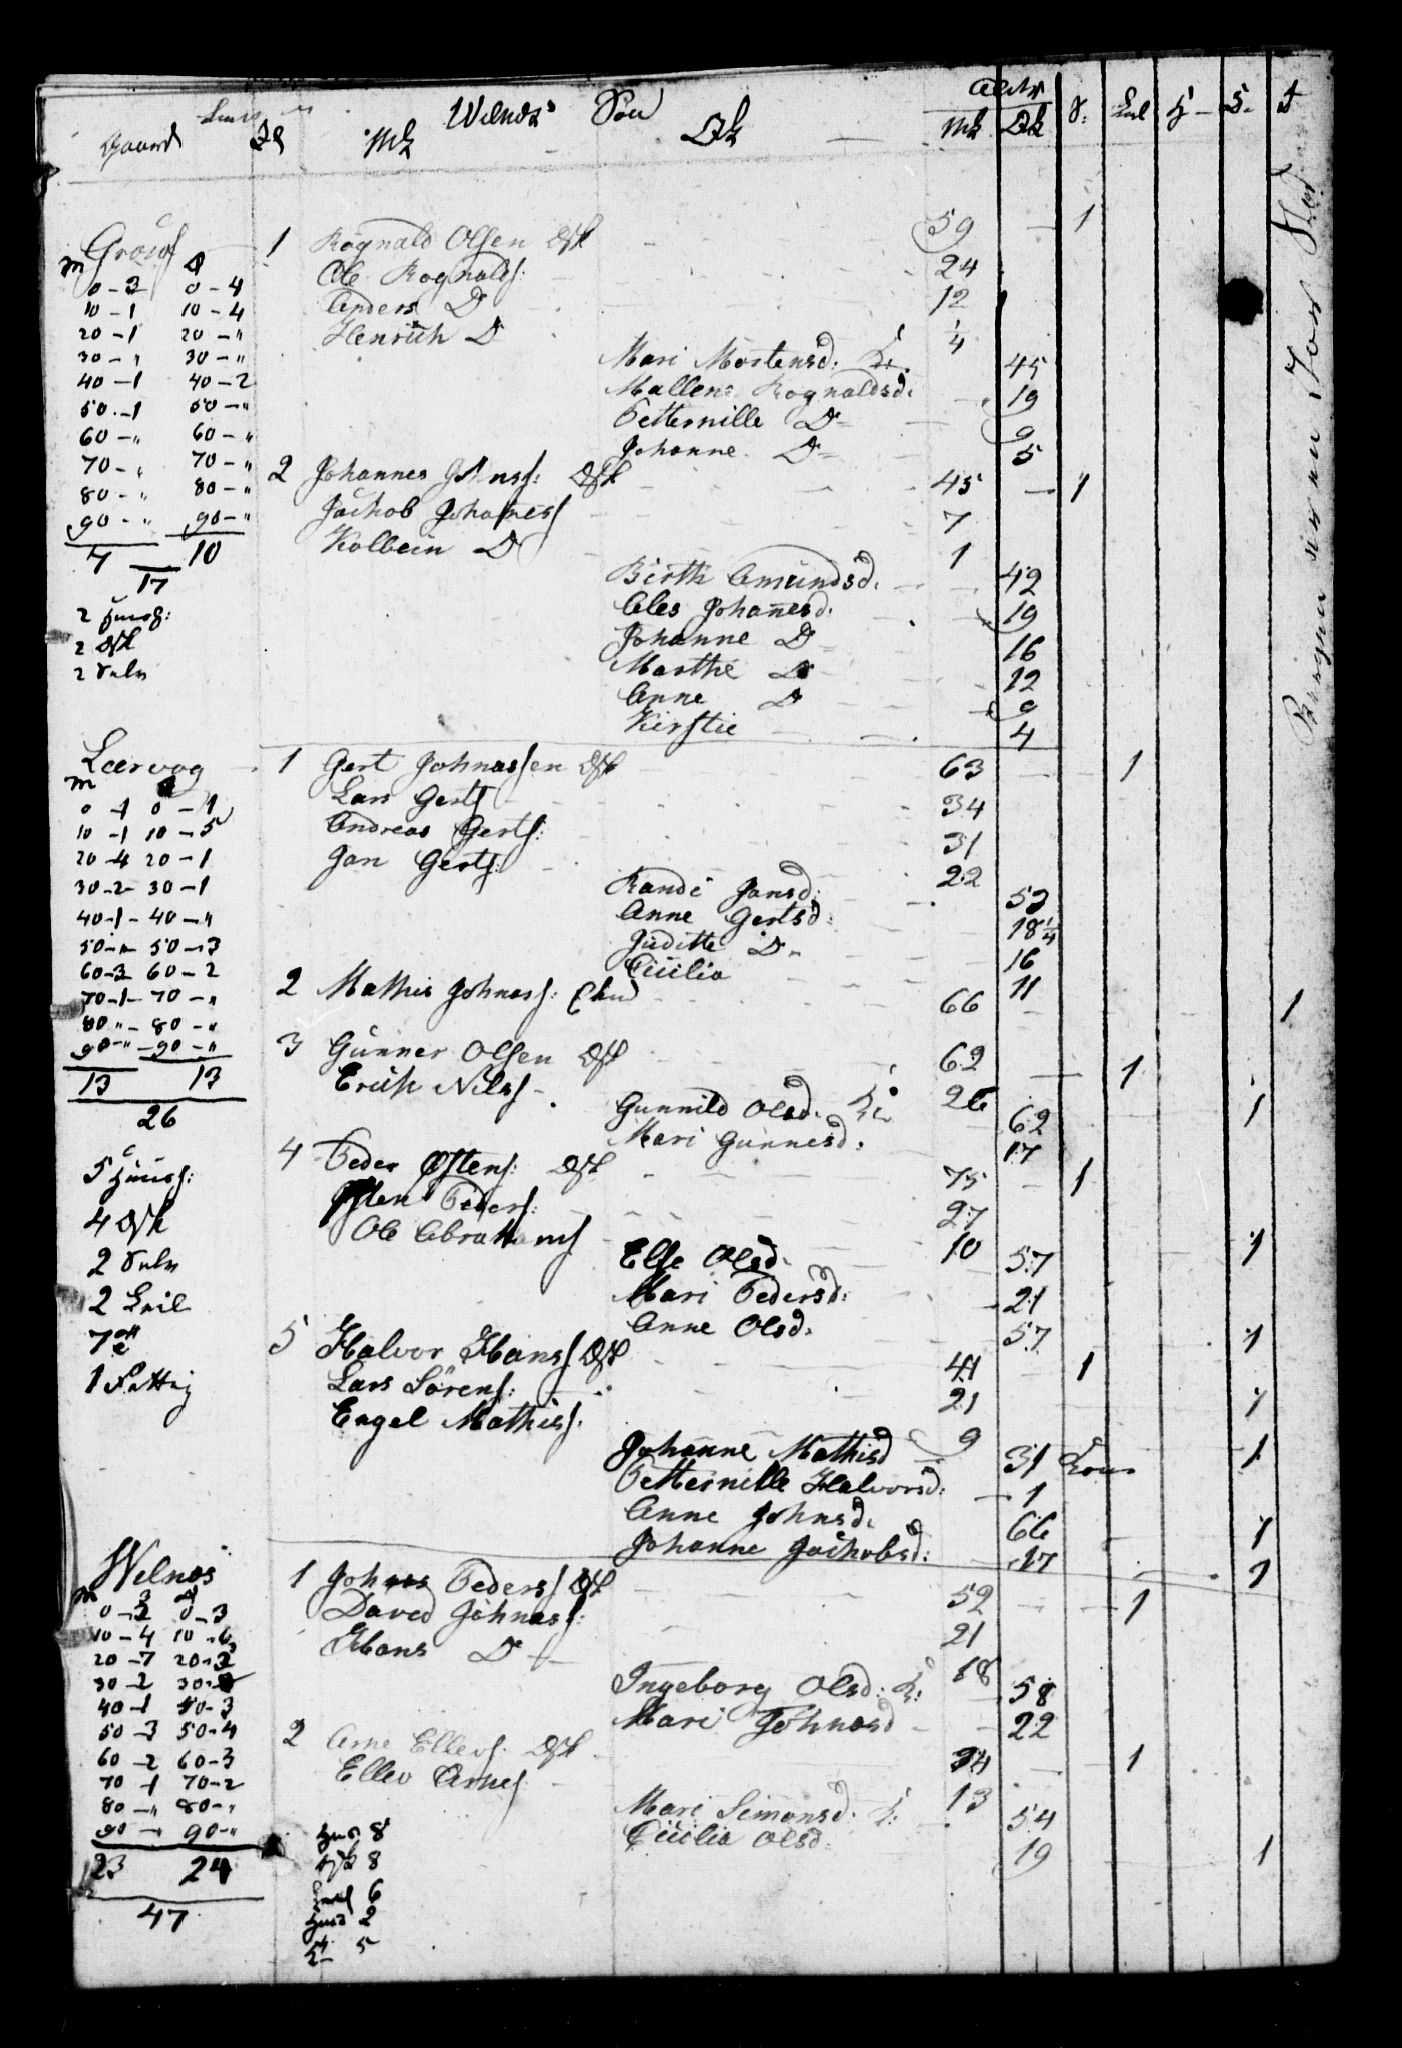 Wilnæs Sou
Alder
Gaard Mk Qk Mk Qk S: Leil H S. F
Grouf 1 Rognald Olsen Opsk 59 1
M Q
Ole Rognalds: 24
0-3 0-4
Anders D 12
10-1 10-4
Henrich D 1/4
20-1 20-"
Mari Mortensd: K: 45
30-" 30-"
Mallene Rognaldsd: 19
40-1 40-2
Petternille D 9
50-1 50-"
Johanne D 5
60-" 60-"
2 Johannes Johnss: Opsk 45 1
70-" 70-"
Jachob Johanness 7
80-" 80-"
Kolbein D 1
90-" 90-"
7 10
17
Birthe Amundsd: 42
Ales Johanesd: 19
2 Huusf:
Johanne D 16
2 Opsk
Marthe D 12
2 Selv
Anne D 9
Kirstie 4
Leervog 1 Gert Johnassen Opsk 63 1
M Q
Lars Gertss 34
0-1 0-1
Andreas Gertss: 31
10-1 10-5
Jan Gertss: 22
20-4 20-1
Randi Jansd: 53
30-2 30-1
Anne Gertsd: 18 1/4
40-1 40-"
Juditte D 16
50-" 50-3
Cicilia 11
60-3 60-2
2 Mathis Johnass: Enkd 66 1
70-1 70-"
80-" 80-"
3 Gunner Olsen Opsk 62 1
90-" 90-"
Erich Nilss 26 1
13 13
26
Gunnild Olsd: K: 62
Mari Gunnesd: 17
5 Huusf:
4 Peder Østens: Opsk 75 1
4 Opsk
Østen Peders: 27
Ole Abrahams 10 1
2 Selv
Else Olsd: 57
2 Leil
Mari Pedersd: 21
Anne Olsd: 57 1
5 Halvor Hanss Opsk 41 1
1 Fattig
Lars Sörens: 21 1
Engel Mathiss: 9
Johanne Mathisd 31 Kone 1
Petternille Halvorsd: 1
Anne Johnsd: 66 1
Johanne Jachobsd: 17 1
Welnæs 1 Johnas Peders Opsk 52 1
M Q
0-3 0-3
Daved Johnass: 21
10-4 10-6
Hans D 18
20-7 20-3
Ingeborg Olsd: K: 58
30-2
Mari Johnasd 22
40-1 40-3
50-3 50-4
2 Arne Ellevs: Opsk 34 1
60-2 60-3
Ellev Arness 13
70-1 70-2
Mari Simonsd: K: 54
80-" 80-"
Cicilia Olsd: 19 1
90-" 90-"
23 24
47
Huus 8
Opsk 8
Leil 6
Huus 2
5